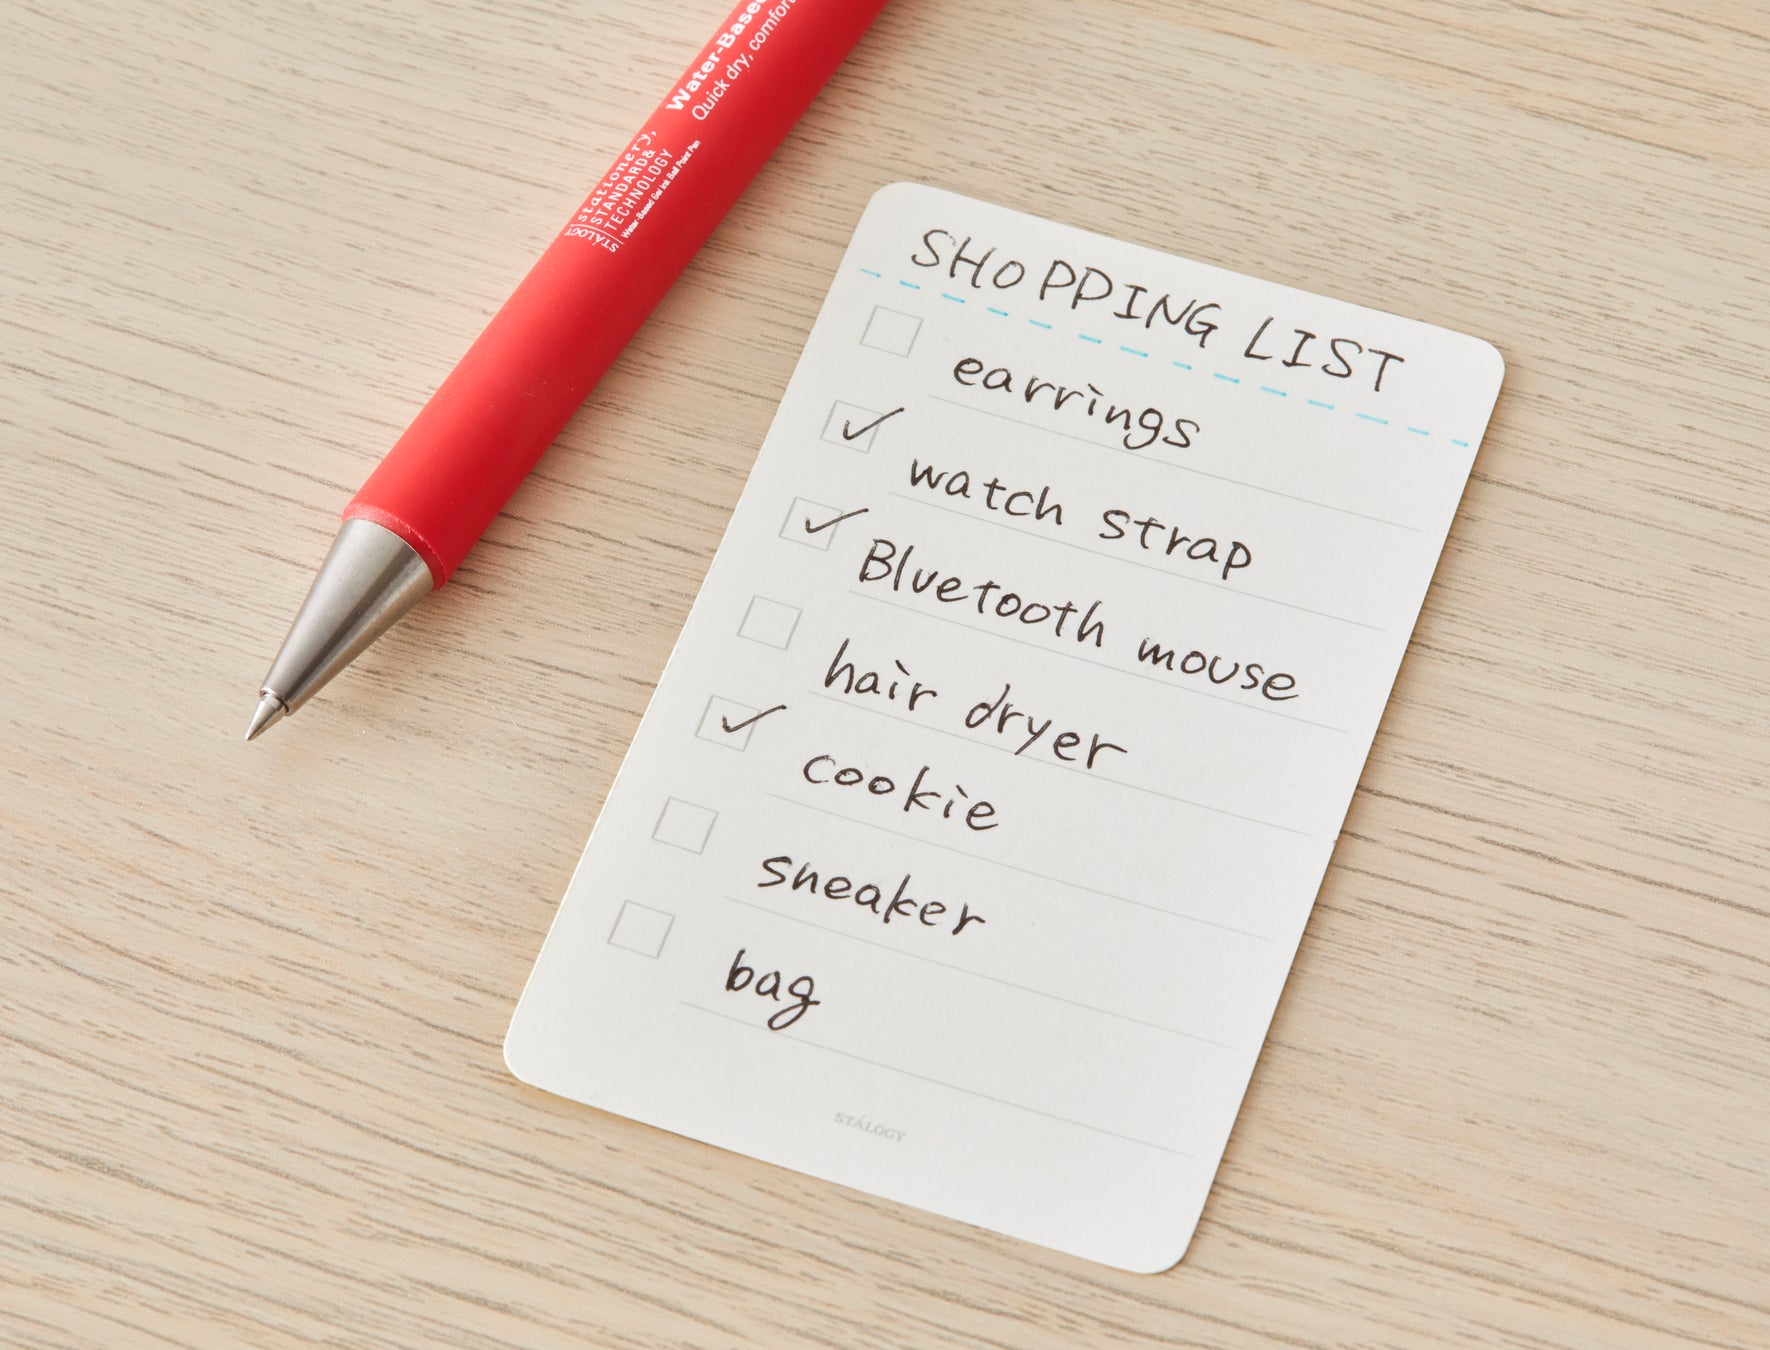 Water-Based
Quick dry, comfor
stationery,
STANDARD&
TECHNOLOGY
STÁLOGY
Water-Based Gel Ink Ball Point Pen
SHOPPING LIST
earrings
watch strap
Bluetooth mouse
hair dryer
cookie
sneaker
bag
STÁLOGY